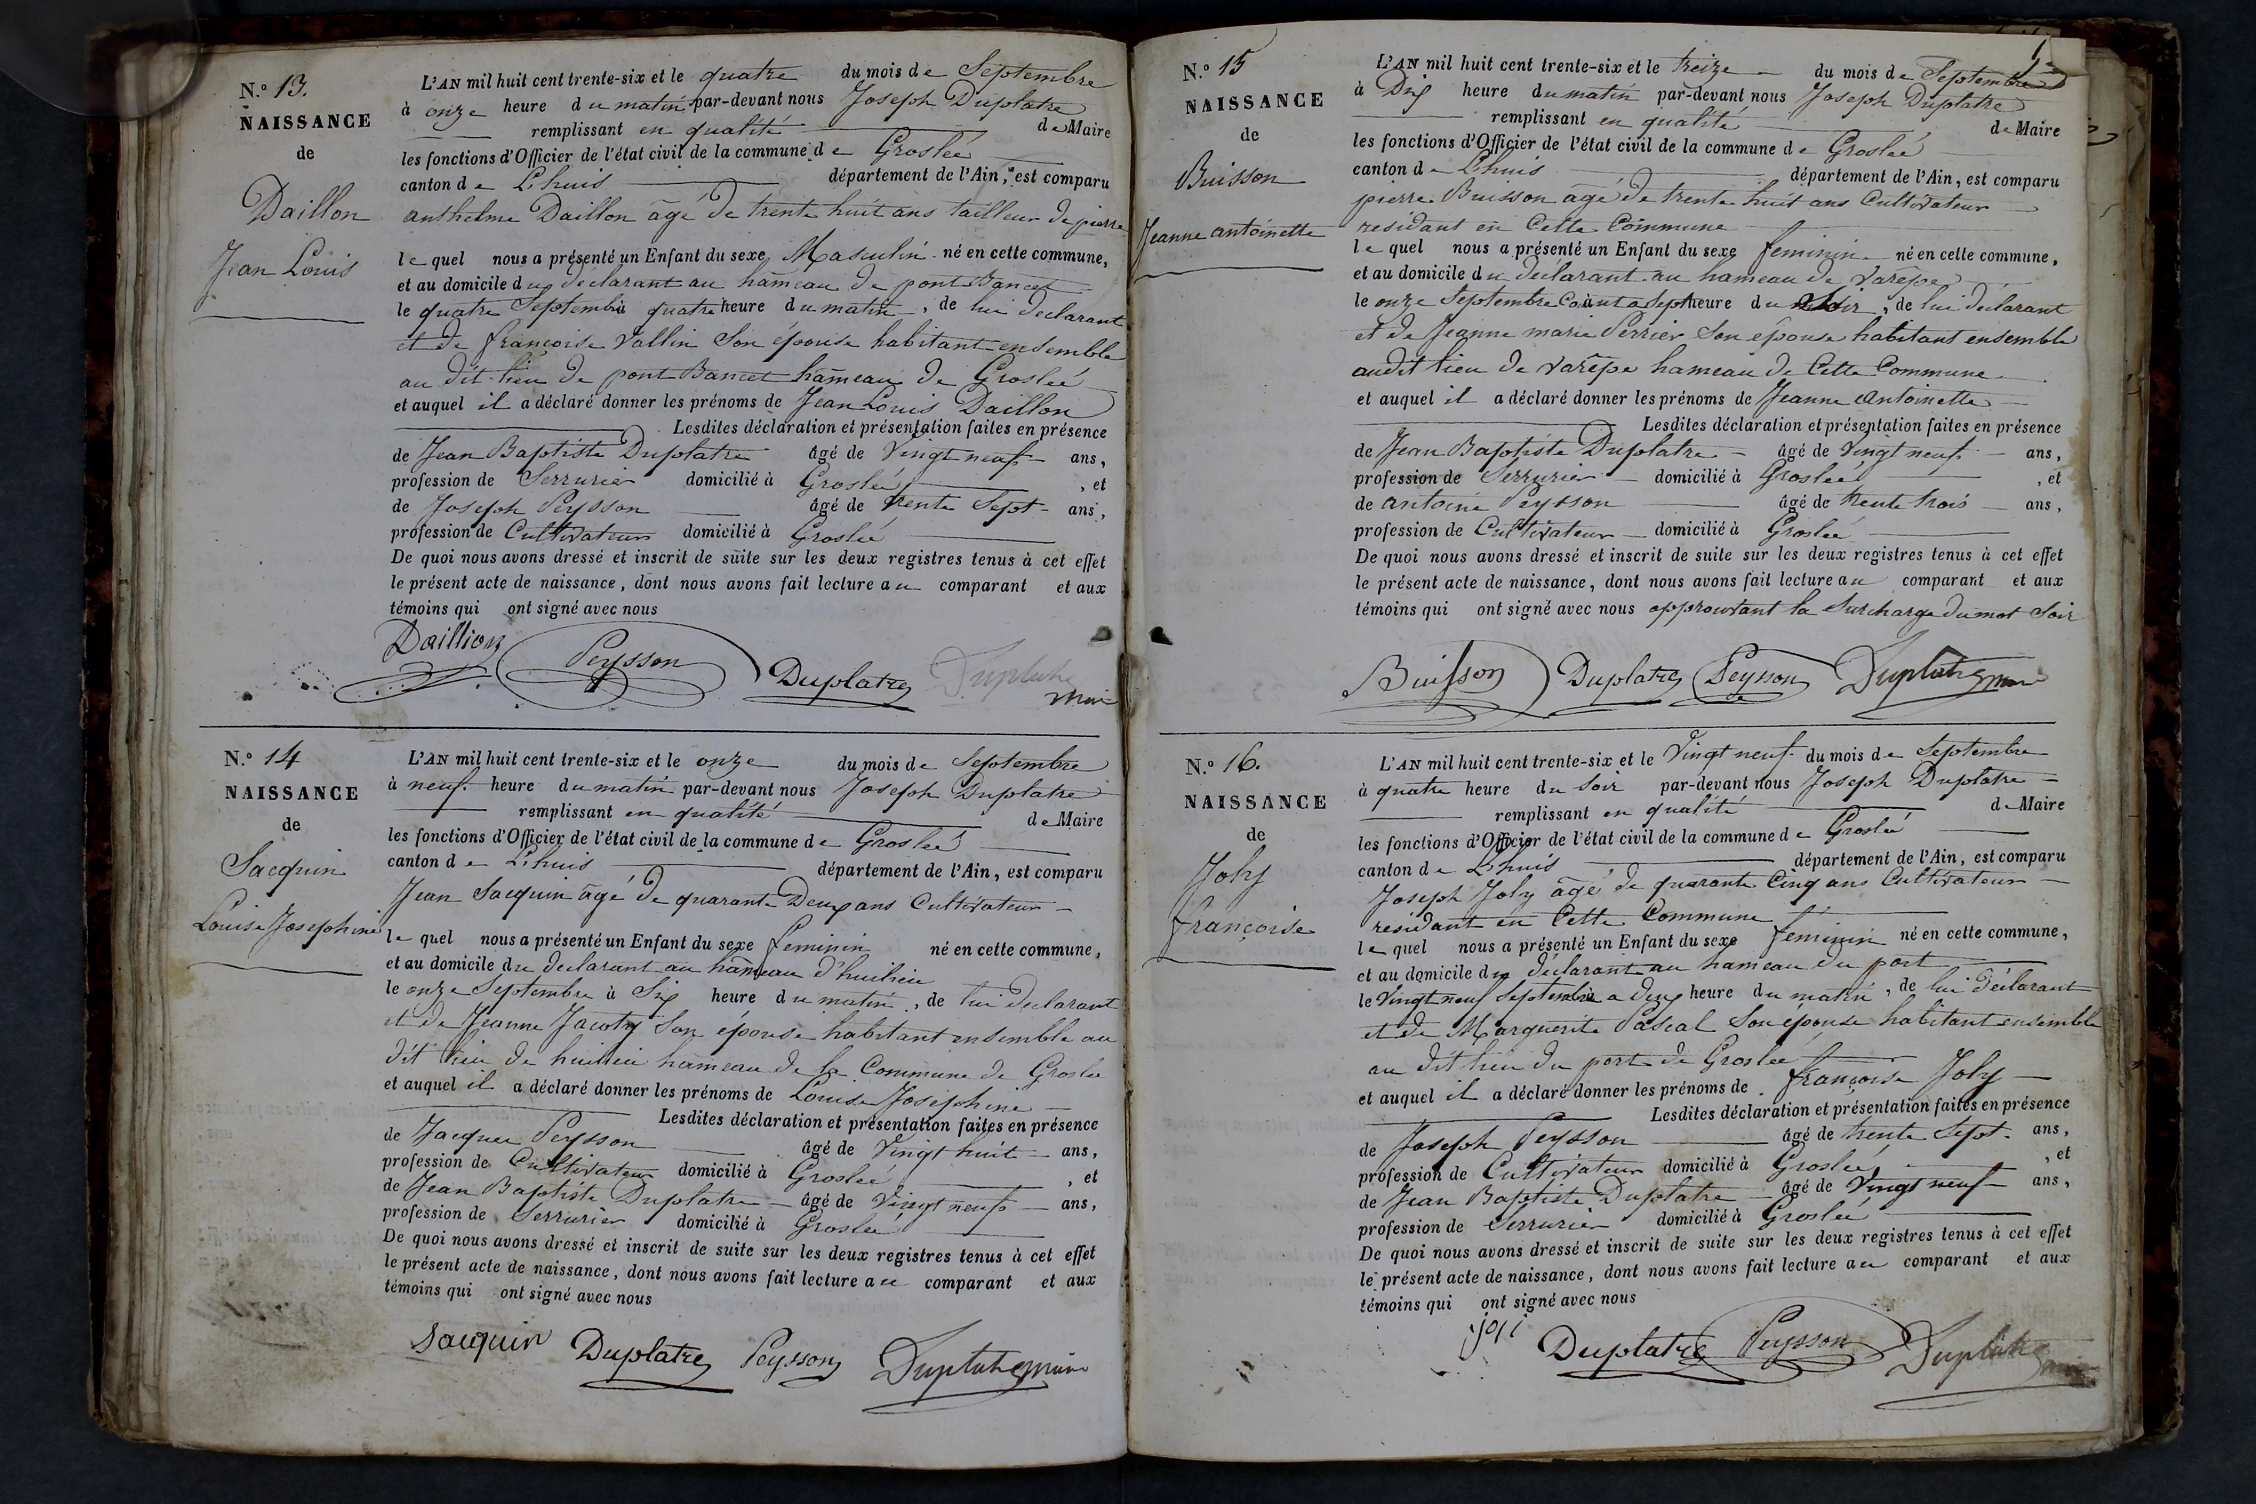 N.° 13.
NAISSANCE
de
Daillon
Jean Louis
L'AN mil huit cent trente-six et le quatre du mois de Septembre
à onze heure du matin par-devant nous Joseph Duplatre
remplissant en qualité de Maire
les fonctions d'Officier de l'état civil de la commune de Groslée
canton de Lhuis département de l'Ain, est comparu
anthelme Daillon âgé de trente huit ans tailleur de pierre
le quel nous a présenté un Enfant du sexe Masculin né en cette commune,
et au domicile du déclarant au hameau de pont Bancet
le quatre Septembre à quatre heure du matin, de lui declarant
et de françoise Vallin Son épouse habitant ensemble
au dit lieu de pont Bancet hameau de Groslée
et auquel il a déclaré donner les prénoms de Jean Louis Daillon
Lesdites déclaration et présentation faites en présence
de Jean Baptiste Duplatre âgé de Vingt neuf ans,
profession de Serrurier domicilié à Groslée, et
de Joseph Peysson âgé de trente Sept ans,
profession de Cultivateur domicilié à Groslée
De quoi nous avons dressé et inscrit de suite sur les deux registres tenus à cet effet
le présent acte de naissance, dont nous avons fait lecture au comparant et aux
témoins qui ont signé avec nous
Daillion Peysson Duplatre Duplatre
maire
N.° 14
NAISSANCE
de
Sacquin
Louise Josephine
L'AN mil huit cent trente-six et le onze du mois de Septembre
à neuf heure du matin par-devant nous Joseph Duplatre
remplissant en qualité de Maire
les fonctions d'Officier de l'état civil de la commune de Groslée
canton de Lhuis département de l'Ain, est comparu
Jean Sacquin âgé de quarante Deux ans Cultivateur
le quel nous a présenté un Enfant du sexe feminin né en cette commune,
et au domicile du declarant au hameau d'huilieu
le onze Septembre à Six heure du matin, de lui declarant
et de Jeanne Jacoty Son épouse habitant ensemble au
dit lieu de huilieu hameau de la Commune de Groslée
et auquel il a déclaré donner les prénoms de Louise Josephine
Lesdites déclaration et présentation faites en présence
de Jacques Peysson âgé de Vingt huit ans,
profession de Cultivateur domicilié à Groslée, et
de Jean Baptiste Duplatre âgé de Vingt neuf ans,
profession de Serrurier domicilié à Groslée
De quoi nous avons dressé et inscrit de suite sur les deux registres tenus à cet effet
le présent acte de naissance, dont nous avons fait lecture au comparant et aux
témoins qui ont signé avec nous
Sacquin Duplatre Peysson Duplatre maire
N.° 15
NAISSANCE
de
Buisson
Jeanne antoinette
L'AN mil huit cent trente-six et le treize du mois de Septembre
à Dix heure du matin par-devant nous Joseph Duplatre
remplissant en qualité de Maire
les fonctions d'Officier de l'état civil de la commune de Groslée
canton de Lhuis département de l'Ain, est comparu
pierre Buisson agé de trente huit ans Cultivateur
residant en Cette Commune
le quel nous a présenté un Enfant du sexe feminin né en cette commune,
et au domicile du declarant au hameau de Varêpe
le onze Septembre Courant a Sept heure du Soir, de lui déclarant
et de Jeanne marie Perrier Son épouse habitant ensemble
audit lieu de Varêpe hameau de Cette Commune
et auquel il a déclaré donner les prénoms de Jeanne Antoinette
Lesdites déclaration et présentation faites en présence
de Jean Baptiste Duplatre âgé de Vingt neuf ans,
profession de Serrurier domicilié à Groslée, et
de antoine Peysson âgé de trente trois ans,
profession de Cultivateur domicilié à Groslée
De quoi nous avons dressé et inscrit de suite sur les deux registres tenus à cet effet
le présent acte de naissance, dont nous avons fait lecture au comparant et aux
témoins qui ont signé avec nous approuvant la Surcharge du mot Soir
Buisson Duplatre Peysson Duplatre maire
N.° 16.
NAISSANCE
de
Joly
françoise
L'AN mil huit cent trente-six et le Vingt neuf du mois de Septembre
à quatre heure du Soir par-devant nous Joseph Duplatre
remplissant en qualité de Maire
les fonctions d'Officier de l'état civil de la commune de Groslée
canton de Lhuis département de l'Ain, est comparu
Joseph Joly âgé de quarante Cinq ans Cultivateur
residant en Cette Commune
le quel nous a présenté un Enfant du sexe féminin né en cette commune,
et au domicile du déclarant au hameau du port
le Vingt neuf Septembre a deux heure du matin, de lui déclarant
et de Marguerite Pascal Son épouse habitant ensemble
au dit lieu du port de Groslée
et auquel il a déclaré donner les prénoms de françoise Joly
Lesdites déclaration et présentation faites en présence
de Joseph Peysson âgé de trente Sept ans,
profession de Cultivateur domicilié à Groslée, et
de Jean Baptiste Duplatre âgé de Vingt neuf ans,
profession de Serrurier domicilié à Groslée
De quoi nous avons dressé et inscrit de suite sur les deux registres tenus à cet effet
le présent acte de naissance, dont nous avons fait lecture au comparant et aux
témoins qui ont signé avec nous
joli Duplatre Peysson Duplatre